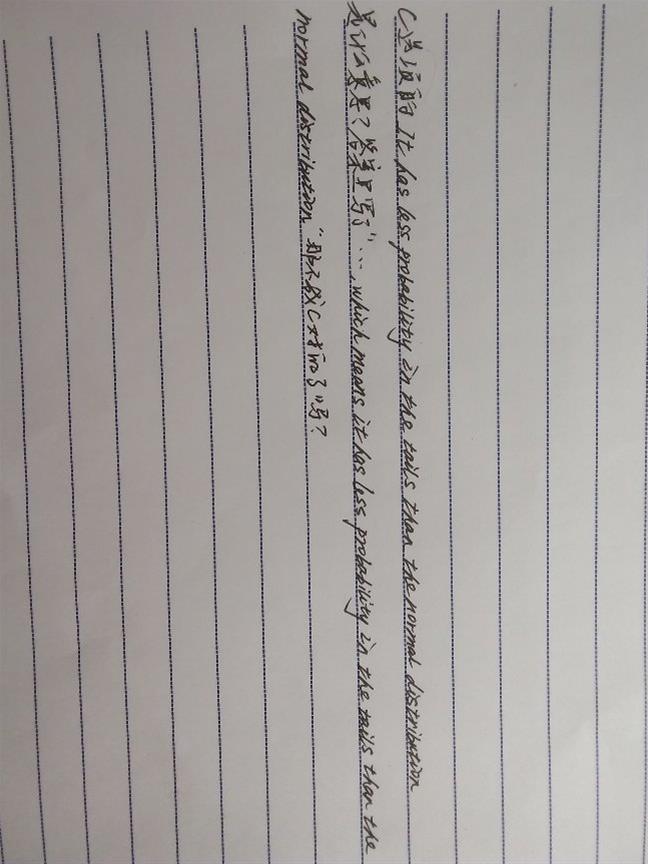 C选项的 It has less probability in the tails than the normal distribution
是什么意思？答案里写了“…, which means it has less probability in the tails than the
normal distribution“那不就C对了吗？